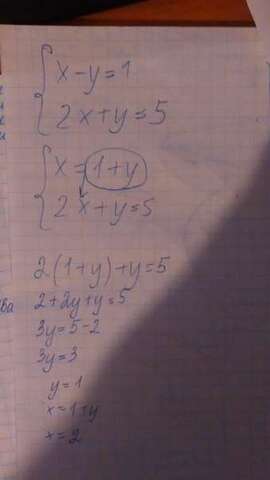 x-y=1
2x+y=5
x=1+y
2x+y=5
2(1+y)+y=5
2+2y+y=5
3y=5-2
3y=3
y=1
x=1+y
x=2